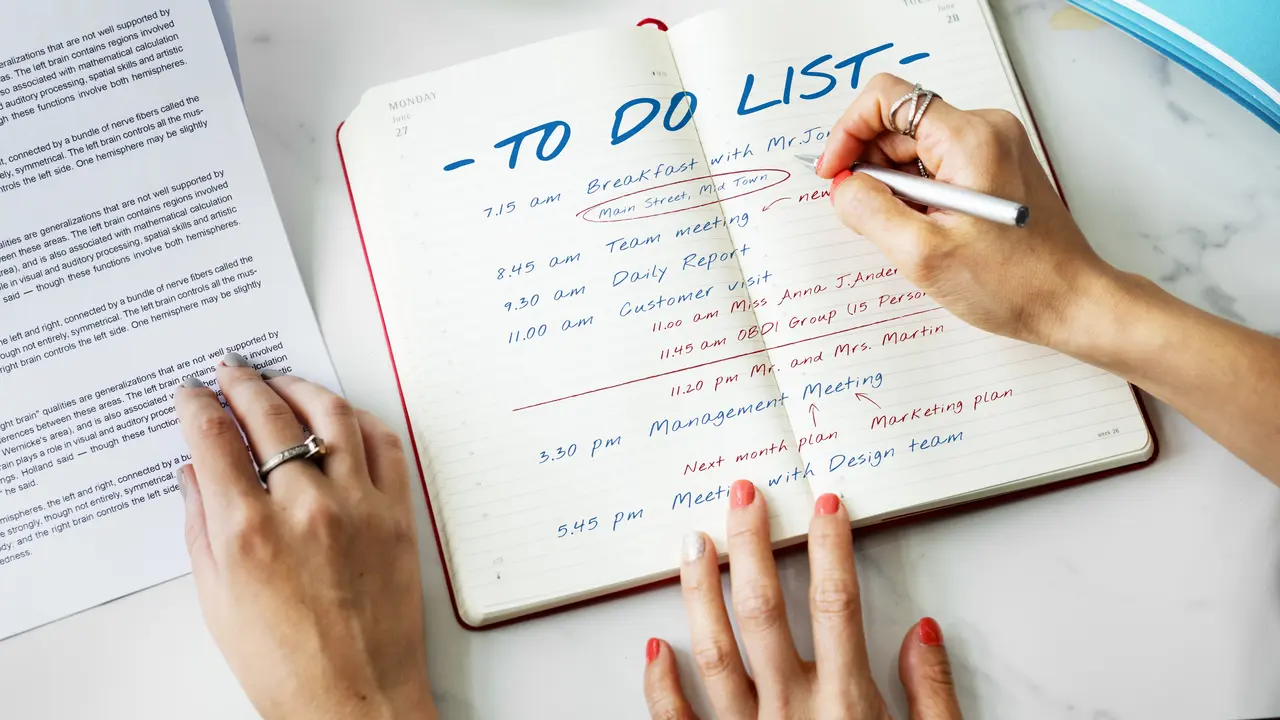 eralizations that are not well supported by
eas. The left brain contains regions involved
so associated with mathematical calculation
and auditory processing, spatial skills and artistic
gh these functions involve both hemispheres.
t, connected by a bundle of nerve fibers called the
ely, symmetrical. The left brain controls all the mus-
ntrols the left side. One hemisphere may be slightly
ualities are generalizations that are not well supported by
between these areas. The left brain contains regions involved
area), and is also associated with mathematical calculation
le in visual and auditory processing, spatial skills and artistic
said — though these functions involve both hemispheres.
he left and right, connected by a bundle of nerve fibers called the
ough not entirely, symmetrical. The left brain controls all the mus-
right brain controls the left side. One hemisphere may be slightly
ght brain" qualities are generalizations that are not well supported by
ferences between these areas. The left brain contains involved
Wernicke's area), and is also associated calculation
rain plays a role in visual and auditory
ngs, Holland said — though these
he said.
mispheres, the left and right, connected by a
e strongly, though not entirely, symmetrical.
dy; and the right brain controls the left side
edness.
MONDAY
June
27
June
28
- TO DO LIST -
7.15 am Breakfast with Mr.
Main Street, Mid Town
new
8.45 am Team meeting
9.30 am Daily Report
11.00 am Customer visit
11.00 am Miss Anna J.
11.45 am OBDI Group (15
11.20 pm Mr. and Mrs. Martin
3.30 pm Management Meeting
Next month plan
Marketing plan
5.45 pm with Design team
week 26